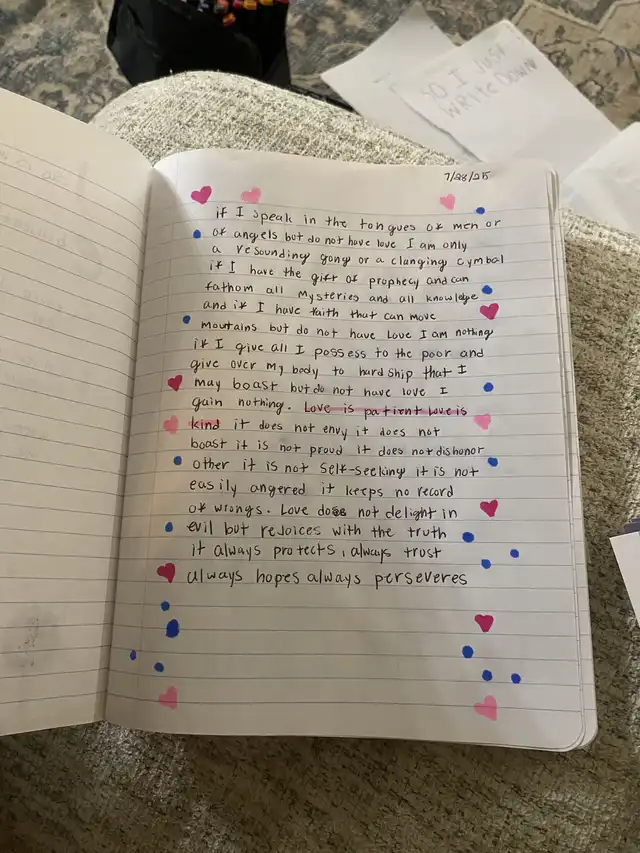 YO I JUST
WRITE DOWN
7/28/25
if I speak in the tongues of men or
of angels but do not have love I am only
a resounding gong or a clanging cymbal
if I have the gift of prophecy and can
fathom all mysteries and all knowledge
and if I have faith that can move
moutains but do not have love I am nothing
if I give all I possess to the poor and
give over my body to hardship that I
may boast but do not have love I
gain nothing. Love is patient love is
kind it does not envy it does not
boast it is not proud it does not dishonor
other it is not self-seeking it is not
easily angered it keeps no record
of wrongs. Love does not delight in
evil but rejoices with the truth
it always protects, always trust
always hopes always perseveres